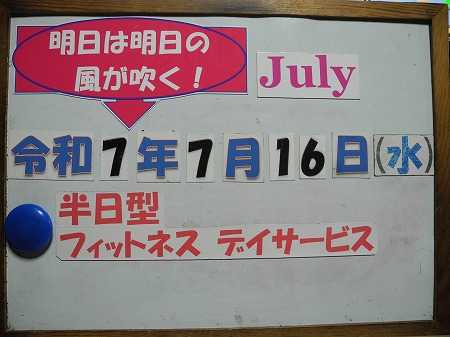 明日は明日の
風が吹く!
July
令和7年7月16日(水)
半日型
フィットネス デイサービス